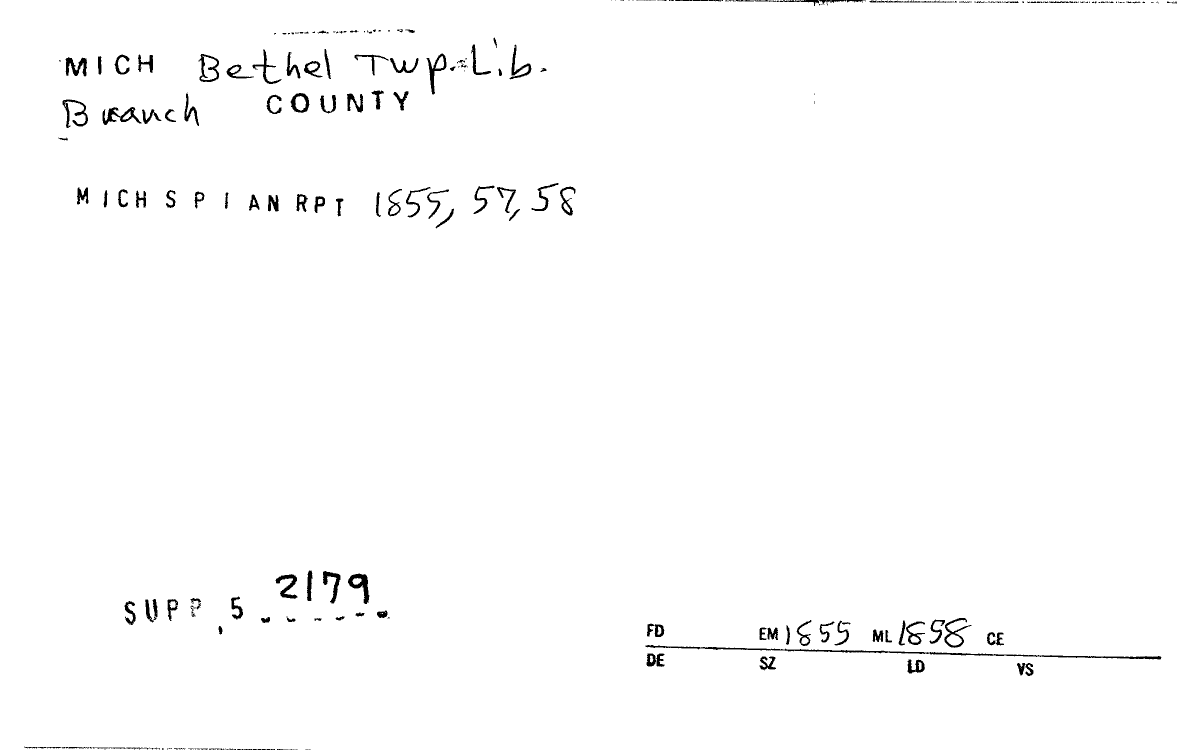 MICH Bethel Twp. Lib.
Branch COUNTY
MICH S P I AN RPT 1855, 57, 58
SUPP, 5 2179
FD EM 1855 ML 1858 CE
DE SZ LD VS